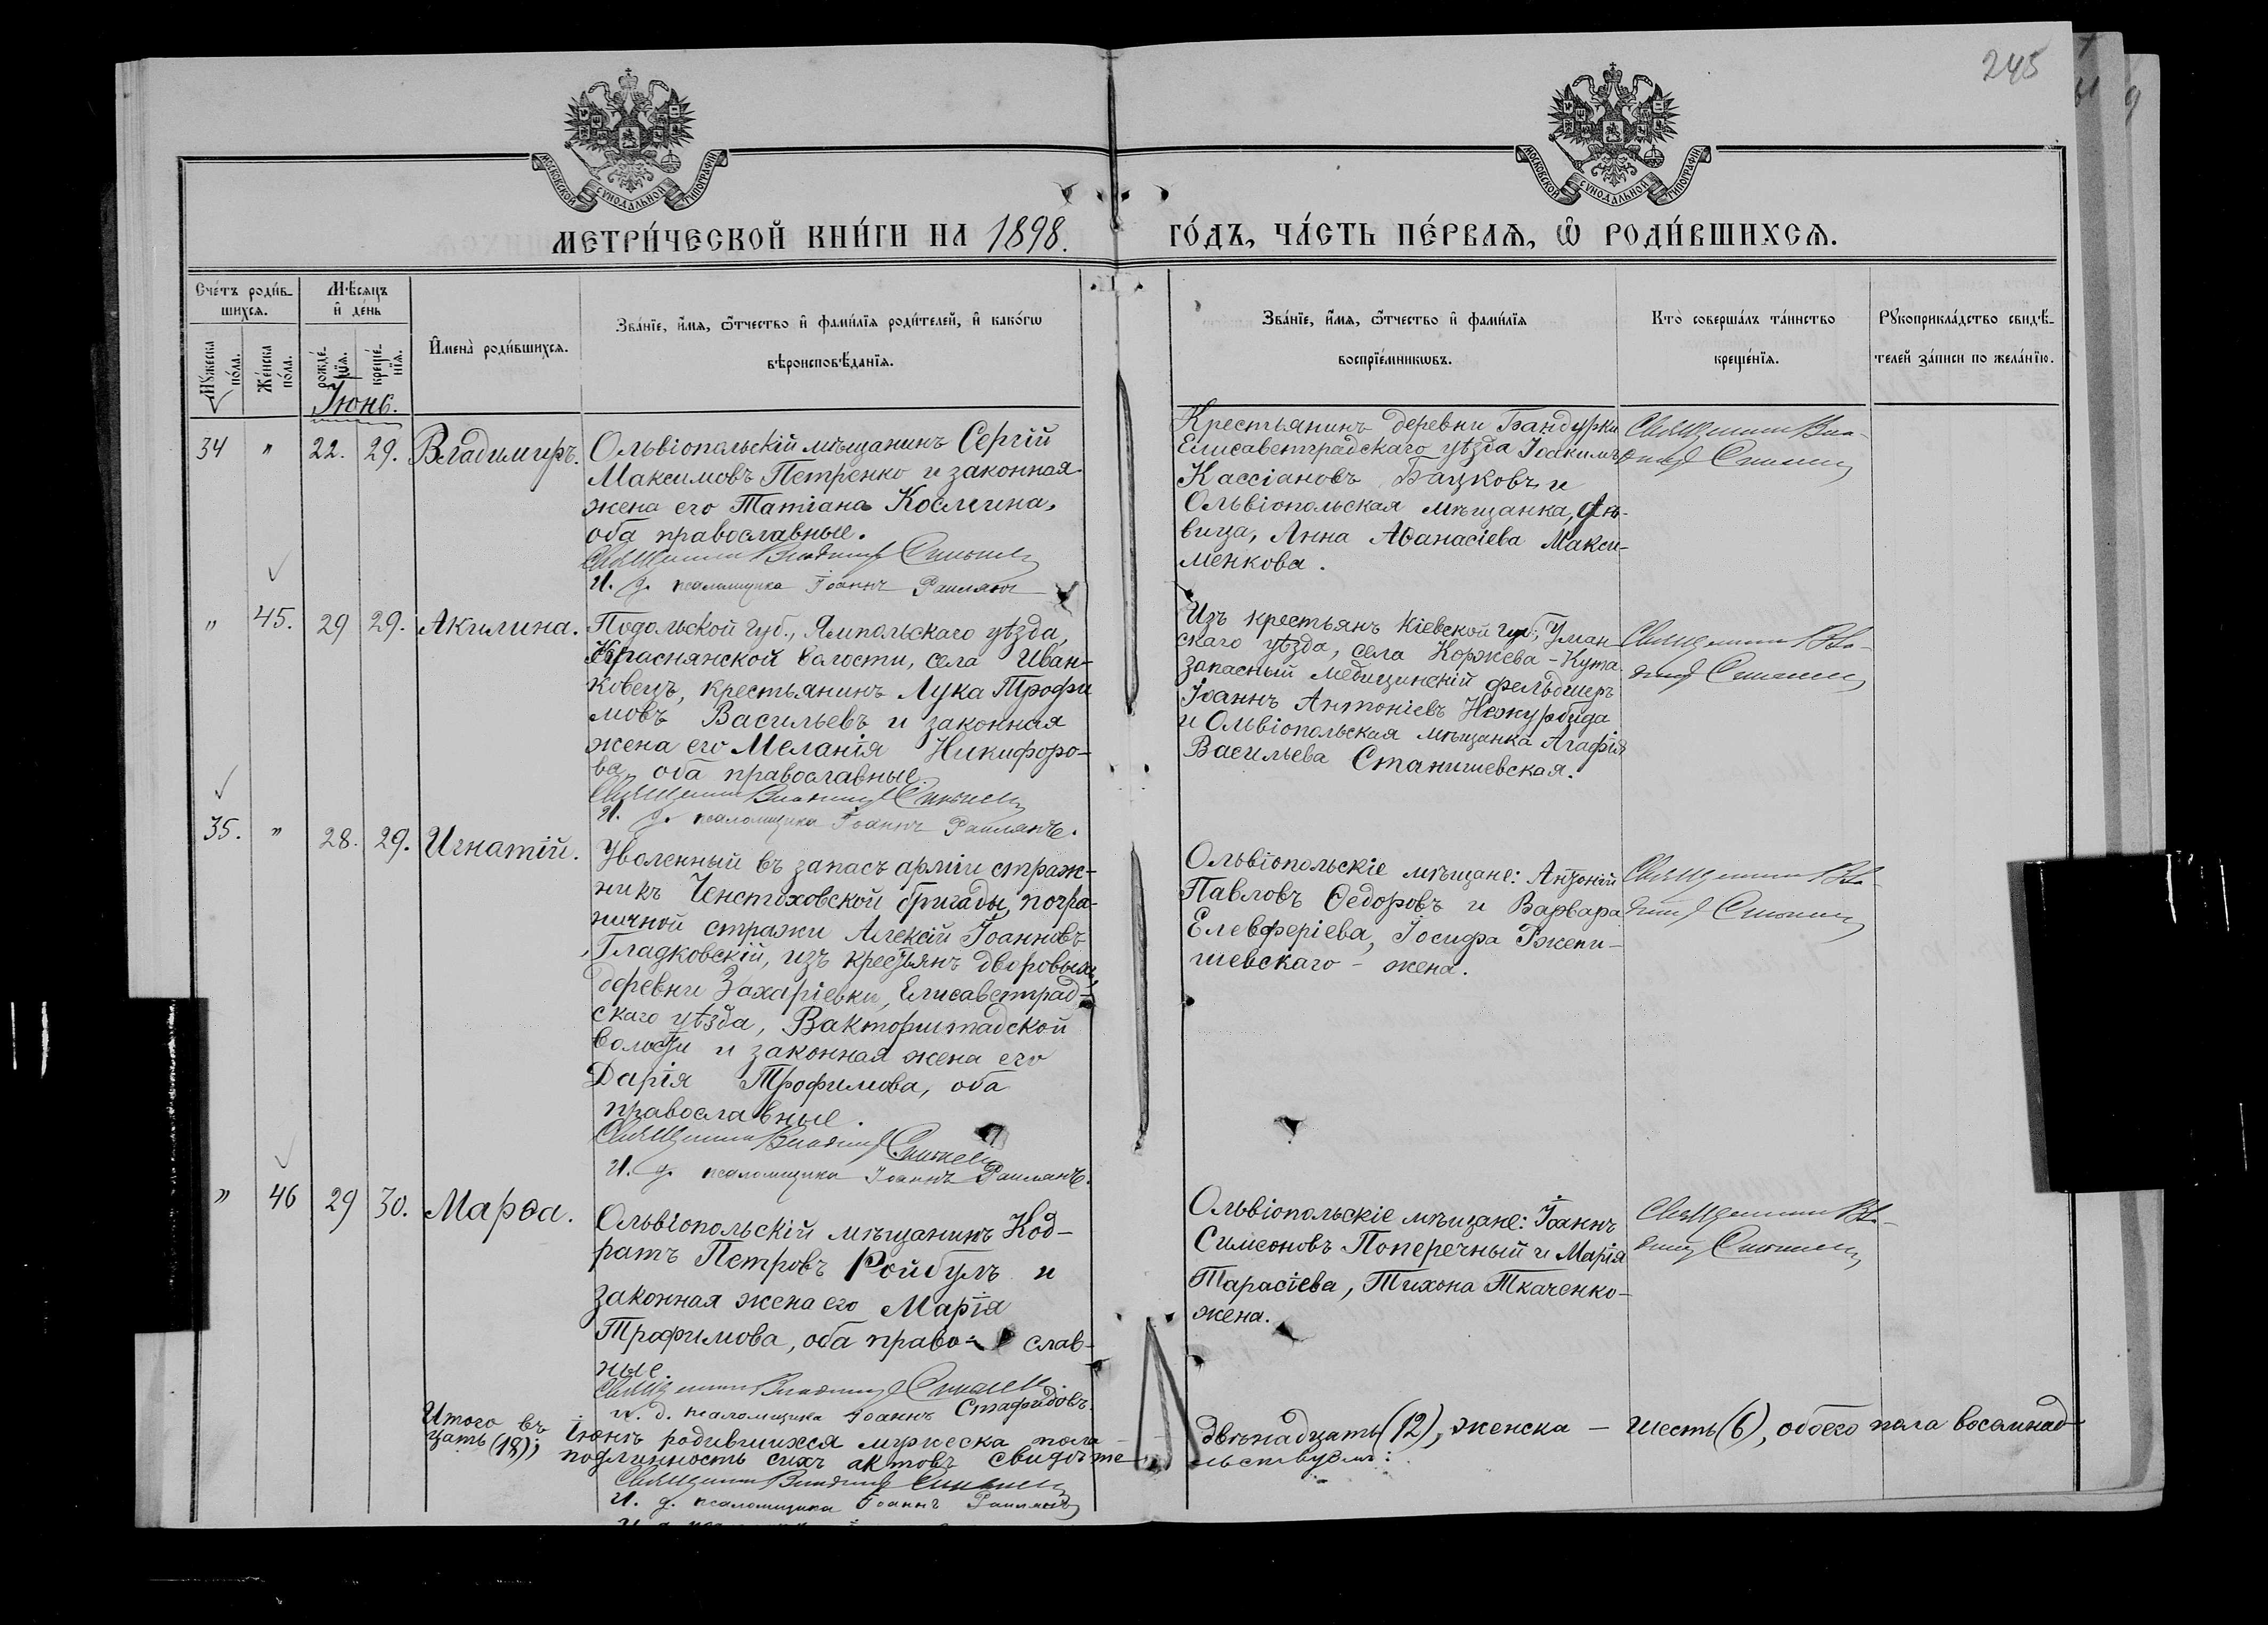 245
МОСКОВСКОЙ СѴНОДАЛЬНОЙ ТИПОГРАФІИ
МОСКОВСКОЙ СѴНОДАЛЬНОЙ ТИПОГРАФІИ
МЕТРИ́ЧЕСКОЙ КНИ́ГИ НА 1898.
ГО́ДЪ, ЧА́СТЬ ПЕ́РВАѦ, Ѡ҆ РОДИ́ВШИХСѦ.
Сче́тъ роди́в-
шихсѧ.
Мꙋ́жеска по́ла.
Же́нска по́ла.
Мѣ́сѧцъ
и҆ де́нь
рожде́-нїѧ.
креще́-нїѧ.
И҆мена̀ роди́вшихсѧ.
Зва́нїе, и҆́мѧ, ѻ҆́тчество и҆ фами́лїѧ роди́телей, и҆ како́гѡ
вѣроисповѣ́данїѧ.
Зва́нїе, и҆́мѧ, ѻ҆́тчество и҆ фами́лїѧ
воспрїе́мникѡвъ.
Кто̀ соверша́лъ та́инство
креще́нїѧ.
Рꙋкоприкла́дство свидѣ́-
телей за́писи по жела́нїю.
Іюнь.
34 " 22. 29. Владимиръ.
Ольвіопольскій мѣщанинъ Сергій
Максимовъ Петренко и законная
жена его Татіана Космина,
оба православные.
Священникъ Владиміръ
И. д. псаломщика Іоаннъ
Крестьянинъ деревни Бандурки
Елисаветградскаго уѣзда Іоакимъ
Кассіановъ Бацковъ и
Ольвіопольская мѣщанка, дѣ-
вица, Анна Аѳанасіева Макси-
менкова.
Священникъ Вла-
диміръ
" 45. 29 29. Акилина.
Подольской губ., Ямпольскаго уѣзда,
Краснянской волости, села Иван-
ковецъ, крестьянинъ Лука Трофи
мовъ Васильевъ и законная
жена его Меланія Никифоро-
ва, оба православные.
Священникъ Владиміръ
И. д. псаломщика Іоаннъ
Изъ крестьянъ Кіевской губ., Уман
скаго уѣзда, села Коржева-Кута
запасный медицинскій фельдшеръ
Іоаннъ Антоніевъ
и Ольвіопольская мѣщанка Агафія
Васильева Станишевская.
Священникъ Вла-
диміръ
35. " 28. 29. Игнатій.
Уволенный въ запасъ арміи страж-
никъ Ченстоховской бригады, погра-
ничной стражи Алексій Іоанновъ
Гладковскій, изъ крестьянъ дворовыхъ
деревни Захаріевки, Елисаветград-
скаго уѣзда, Викторштадской
волости и законная жена его
Дарія Трофимова, оба
православные.
Священникъ Владиміръ
И. д. псаломщика Іоаннъ
Ольвіопольскіе мѣщане: Антоній
Павловъ Ѳедоровъ и Варвара
Елевферіева, Іосифа Ржепи-
шевскаго - жена.
Священникъ Вла-
диміръ
" 46 29 30. Марѳа.
Ольвіопольскій мѣщанинъ Код-
ратъ Петровъ Ройбулъ и
законная жена его Марія
Трофимова, оба право- слав-
ные.
Священникъ Владиміръ
и. д. псаломщика Іоаннъ Стафидовъ.
Ольвіопольскіе мѣщане: Іоаннъ
Симеоновъ Поперечный и Марія
Тарасіева, Тихона Ткаченко-
жена.
Священникъ Вла-
диміръ
Итого въ Іюнѣ родившихся мужеска пола двѣнадцать (12), женска — шесть (6), обоего пола восемнад-
цать (18); подлинность сихъ актовъ свидѣтельствуемъ:
Священникъ Владиміръ
И. д. псаломщика Іоаннъ